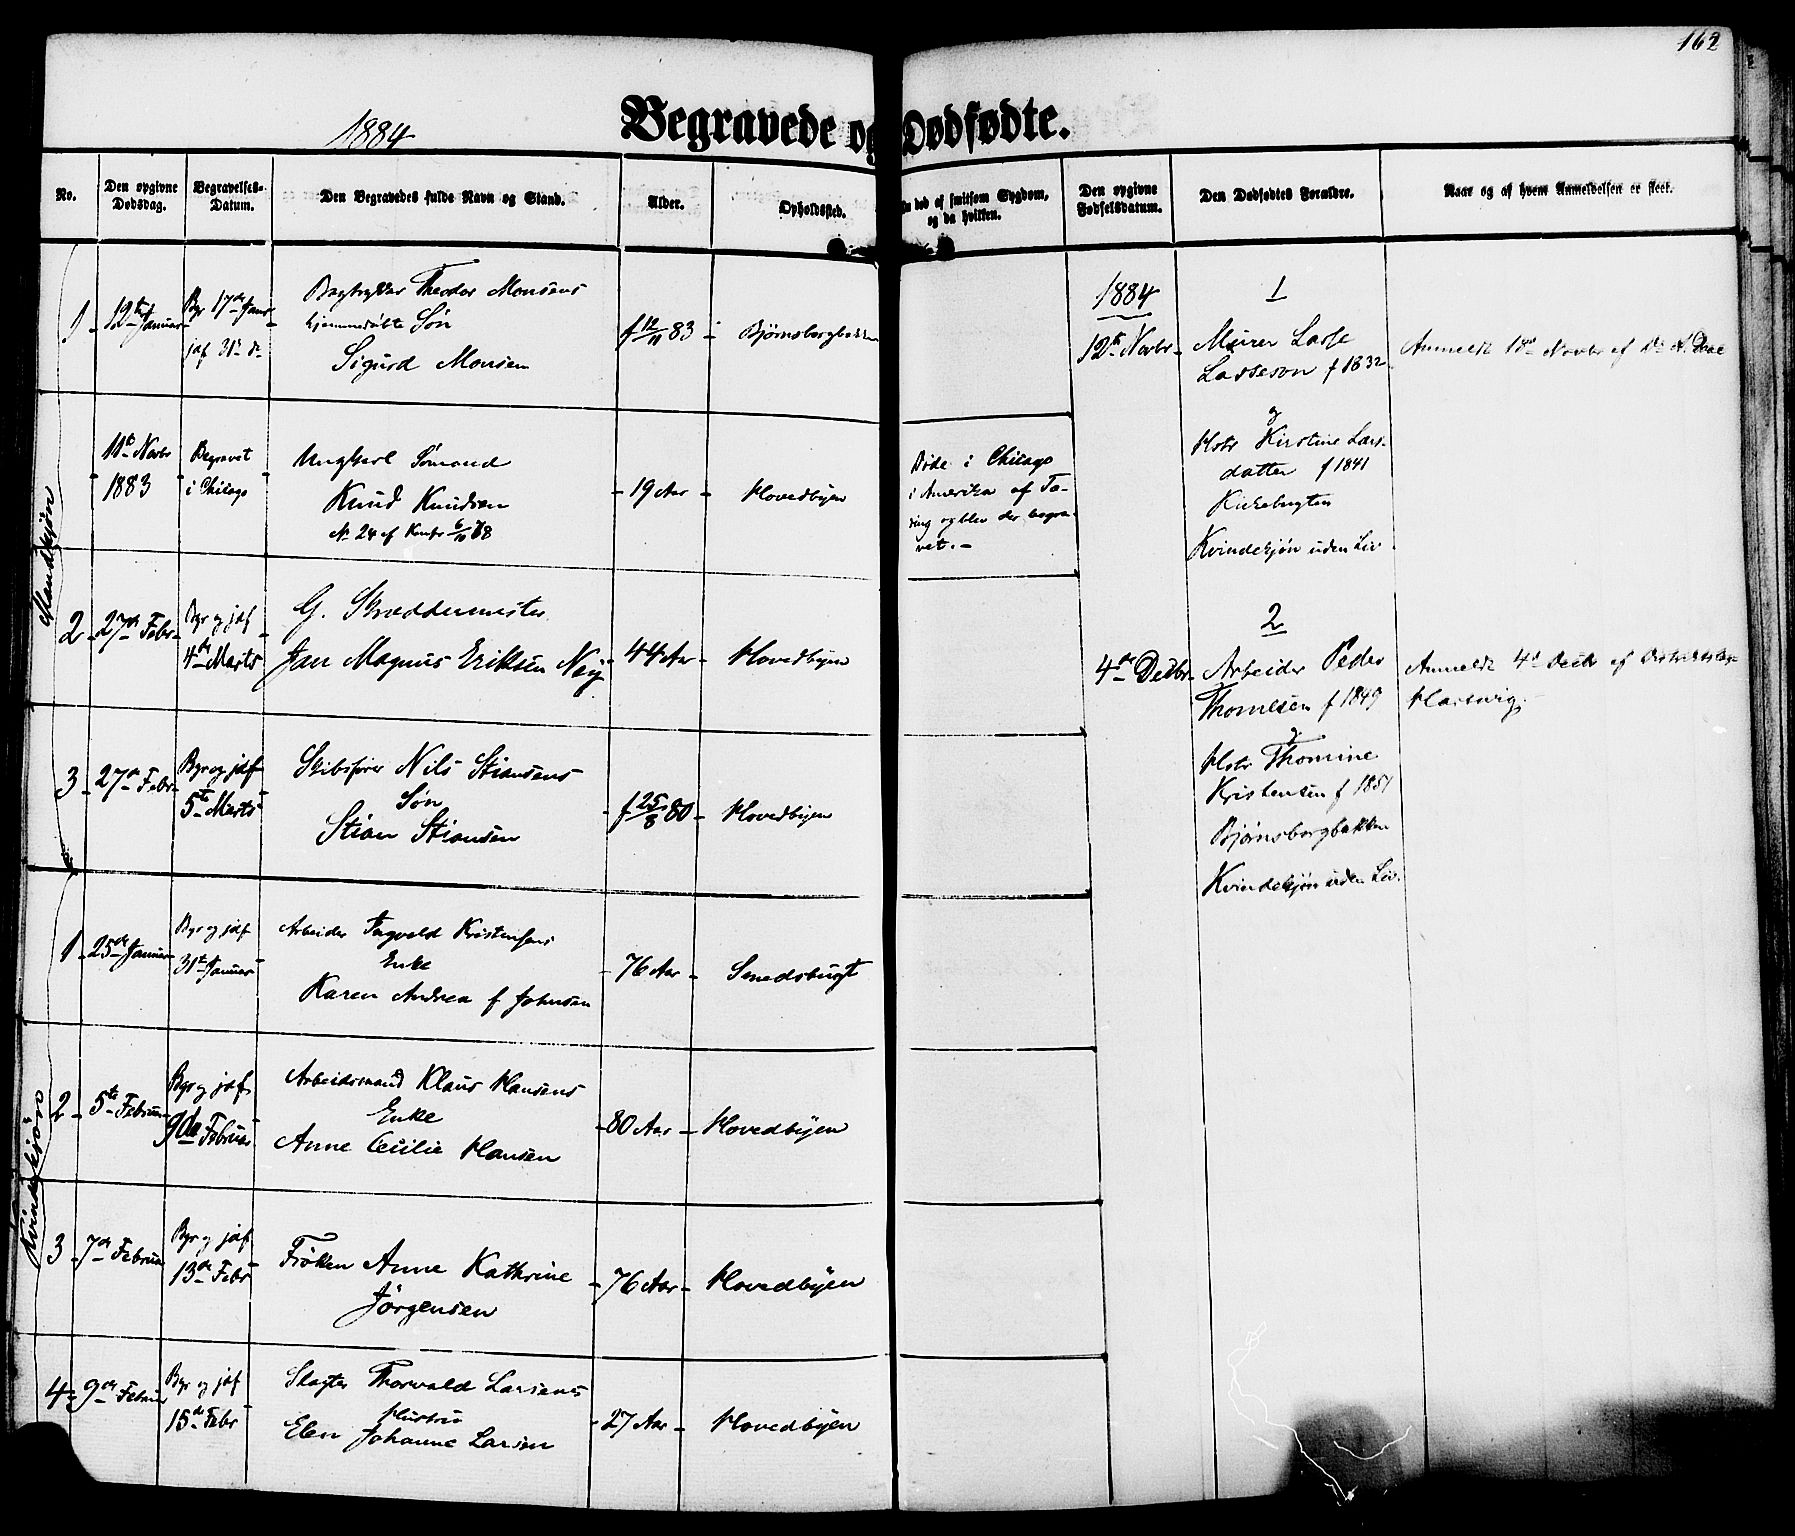 162
1884
Begravede og Dødfødte.
No.
Den opgivne Dødsdag.
Begravelses-Datum.
Den Begravedes fulde Navn og Stand.
Alder.
Opholdssted.
død af smitsom Sygdom, og da hvilken.
Den opgivne Fødselsdatum.
Den Dødfødtes Forældre.
Naar og af hvem Anmeldelsen er skeet.
Mandkjøn
1 - 12te Januar
Bgr 17de Janr
jaf 31te d
Theodor Monsens
hjemmedøbte Søn
Sigurd Monsen
f 12/11 83
Bjørnsborgbakken
11te Novbr
1883
Begravet
i Chicago
Ungkarl Sømand
Knud Knudsen
No 24 af Konf. 6/10 78
19 Aar
Hovedbyen
Døde i Chicago
i Amerika af Tæ-
ring og blev der begra-
vet. -
2 - 27de Febr
Bgr og jaf
4de Marts
G. Skræddermester
Jan Magnus Eriksen Næj
44 Aar
Hovedbyen
3 - 27de Febr
Bgr og jaf
5te Marts
Skibsfører Nils Stiansens
Søn
Stian Stiansen
f 25/8 80
Hovedbyen
Kvindekjøn
1 - 25de Januar
Bgr og jaf
31te Januar
Arbeider Ingvald Kristensens
Enke
Karen Andrea f Johnsen
76 Aar
Smedsbugt
2 - 5te Februar
Bgr og jaf
9de Februar
Arbeidsmand Klaus Hansens
Enke
Anne Cecilie Hansen
80 Aar
Hovedbyen
3 - 7de Februar
Bgr og jaf
13de Febr
Frøken Anne Kathrine
Jørgensen
76 Aar
Hovedbyen
4 - 9de Februar
Bgr og jaf
15de Febr
Slagter Thorvald Larsens
Hustru
Elen Johanne Larsen
27 Aar
Hovedbyen
1884
1
12te Novbr
Murer Lasse
Lasseson f 1832
og
Hstr Kirstine Lars-
datter f 1841
Kirkebugten
Kvindekjøn uden Liv.
Anmeldt 18de Novbr af
2
4de Decbr
Arbeider Peder
Thomesen f 1849
og
Hstr Thomine
Kristensen f 1851
Bjørnsborgbakken
Kvindekjøn uden Liv.
Anmeldt 4de Decbr af Distriktslæge
Hartvig.